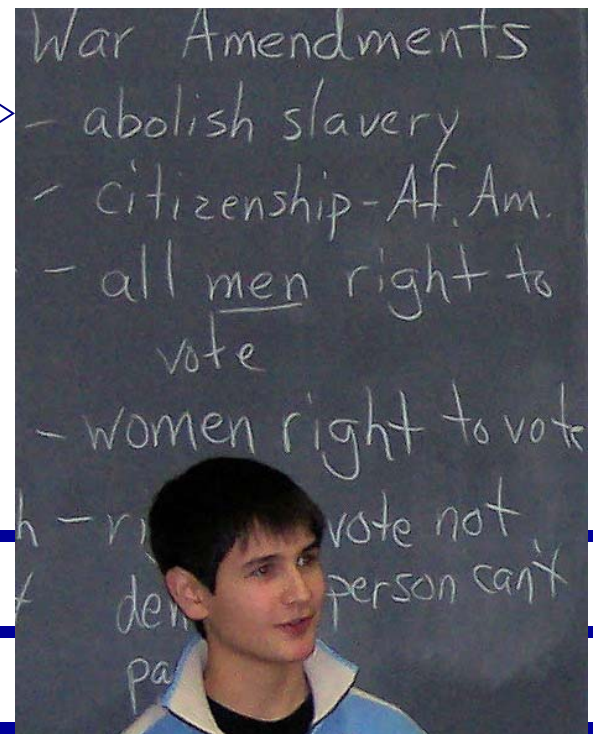 War Amendments
- abolish slavery
- citizenship - Af. Am.
- all men right to
vote
- women right to vote
vote not
person can't